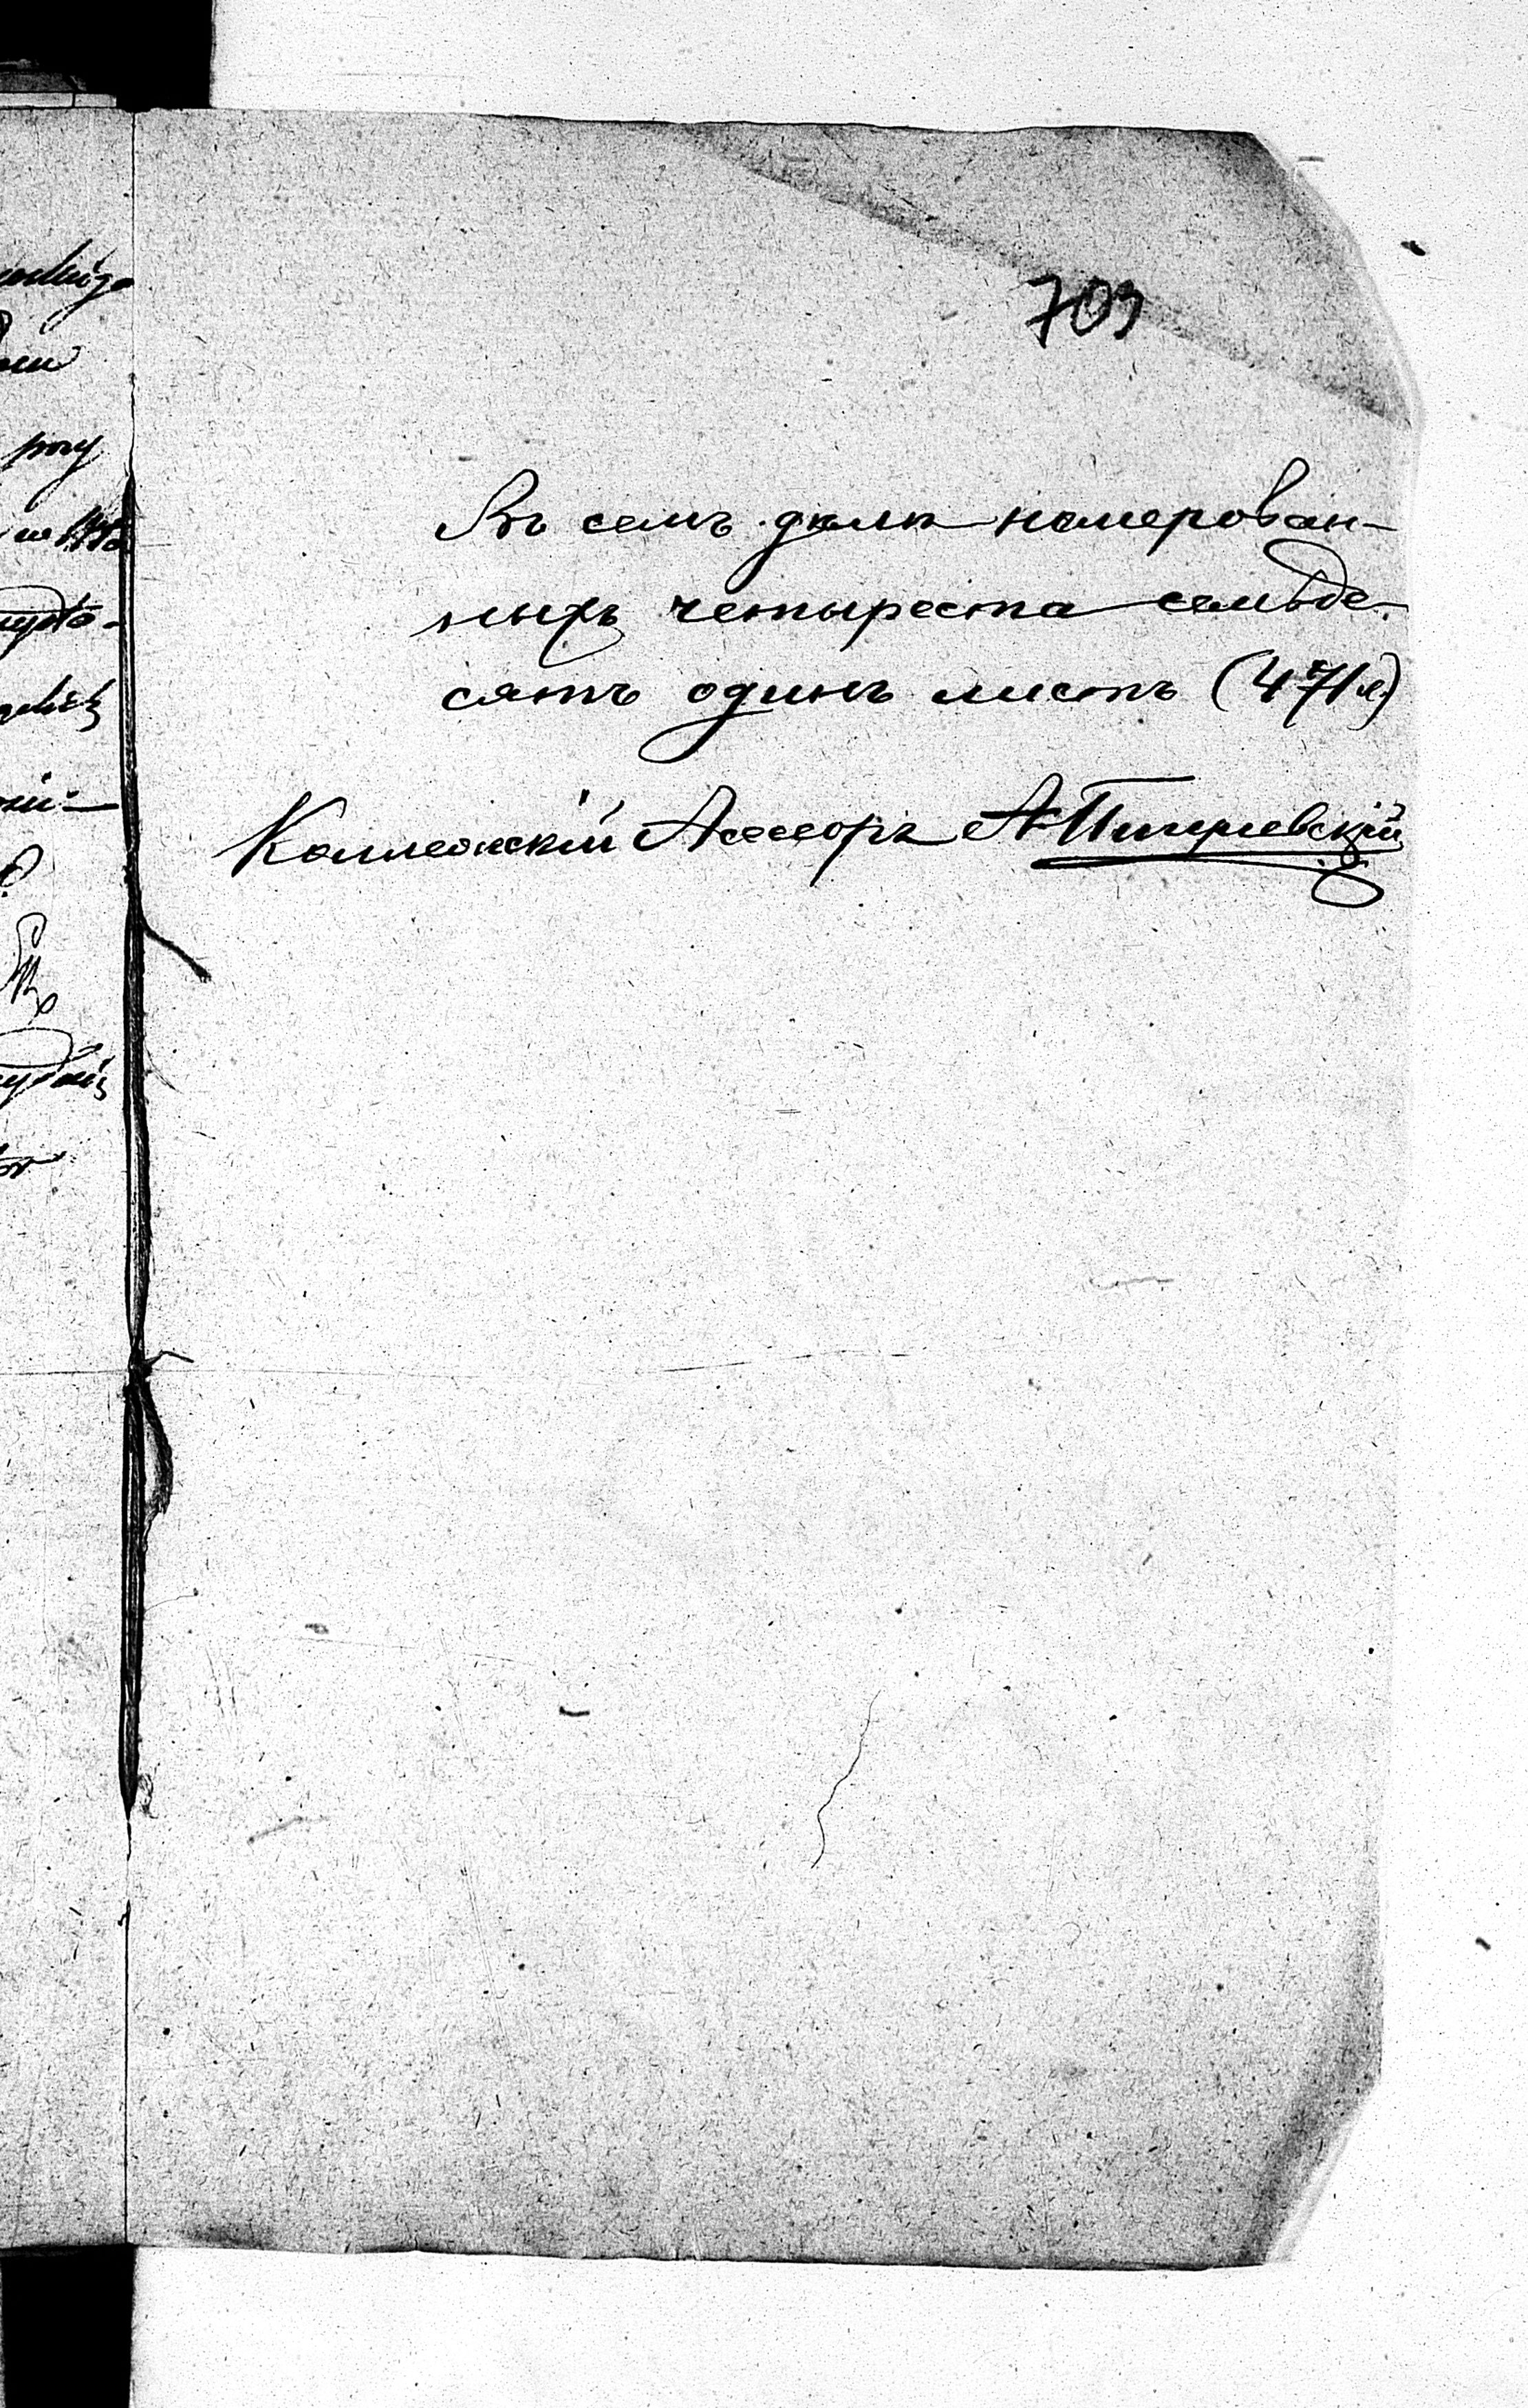 709
Въ семъ дѣлѣ номерован-
ныхъ четыреста семьде-
сятъ одинъ листъ (471 л.)
Коллежскій Асессоръ А.